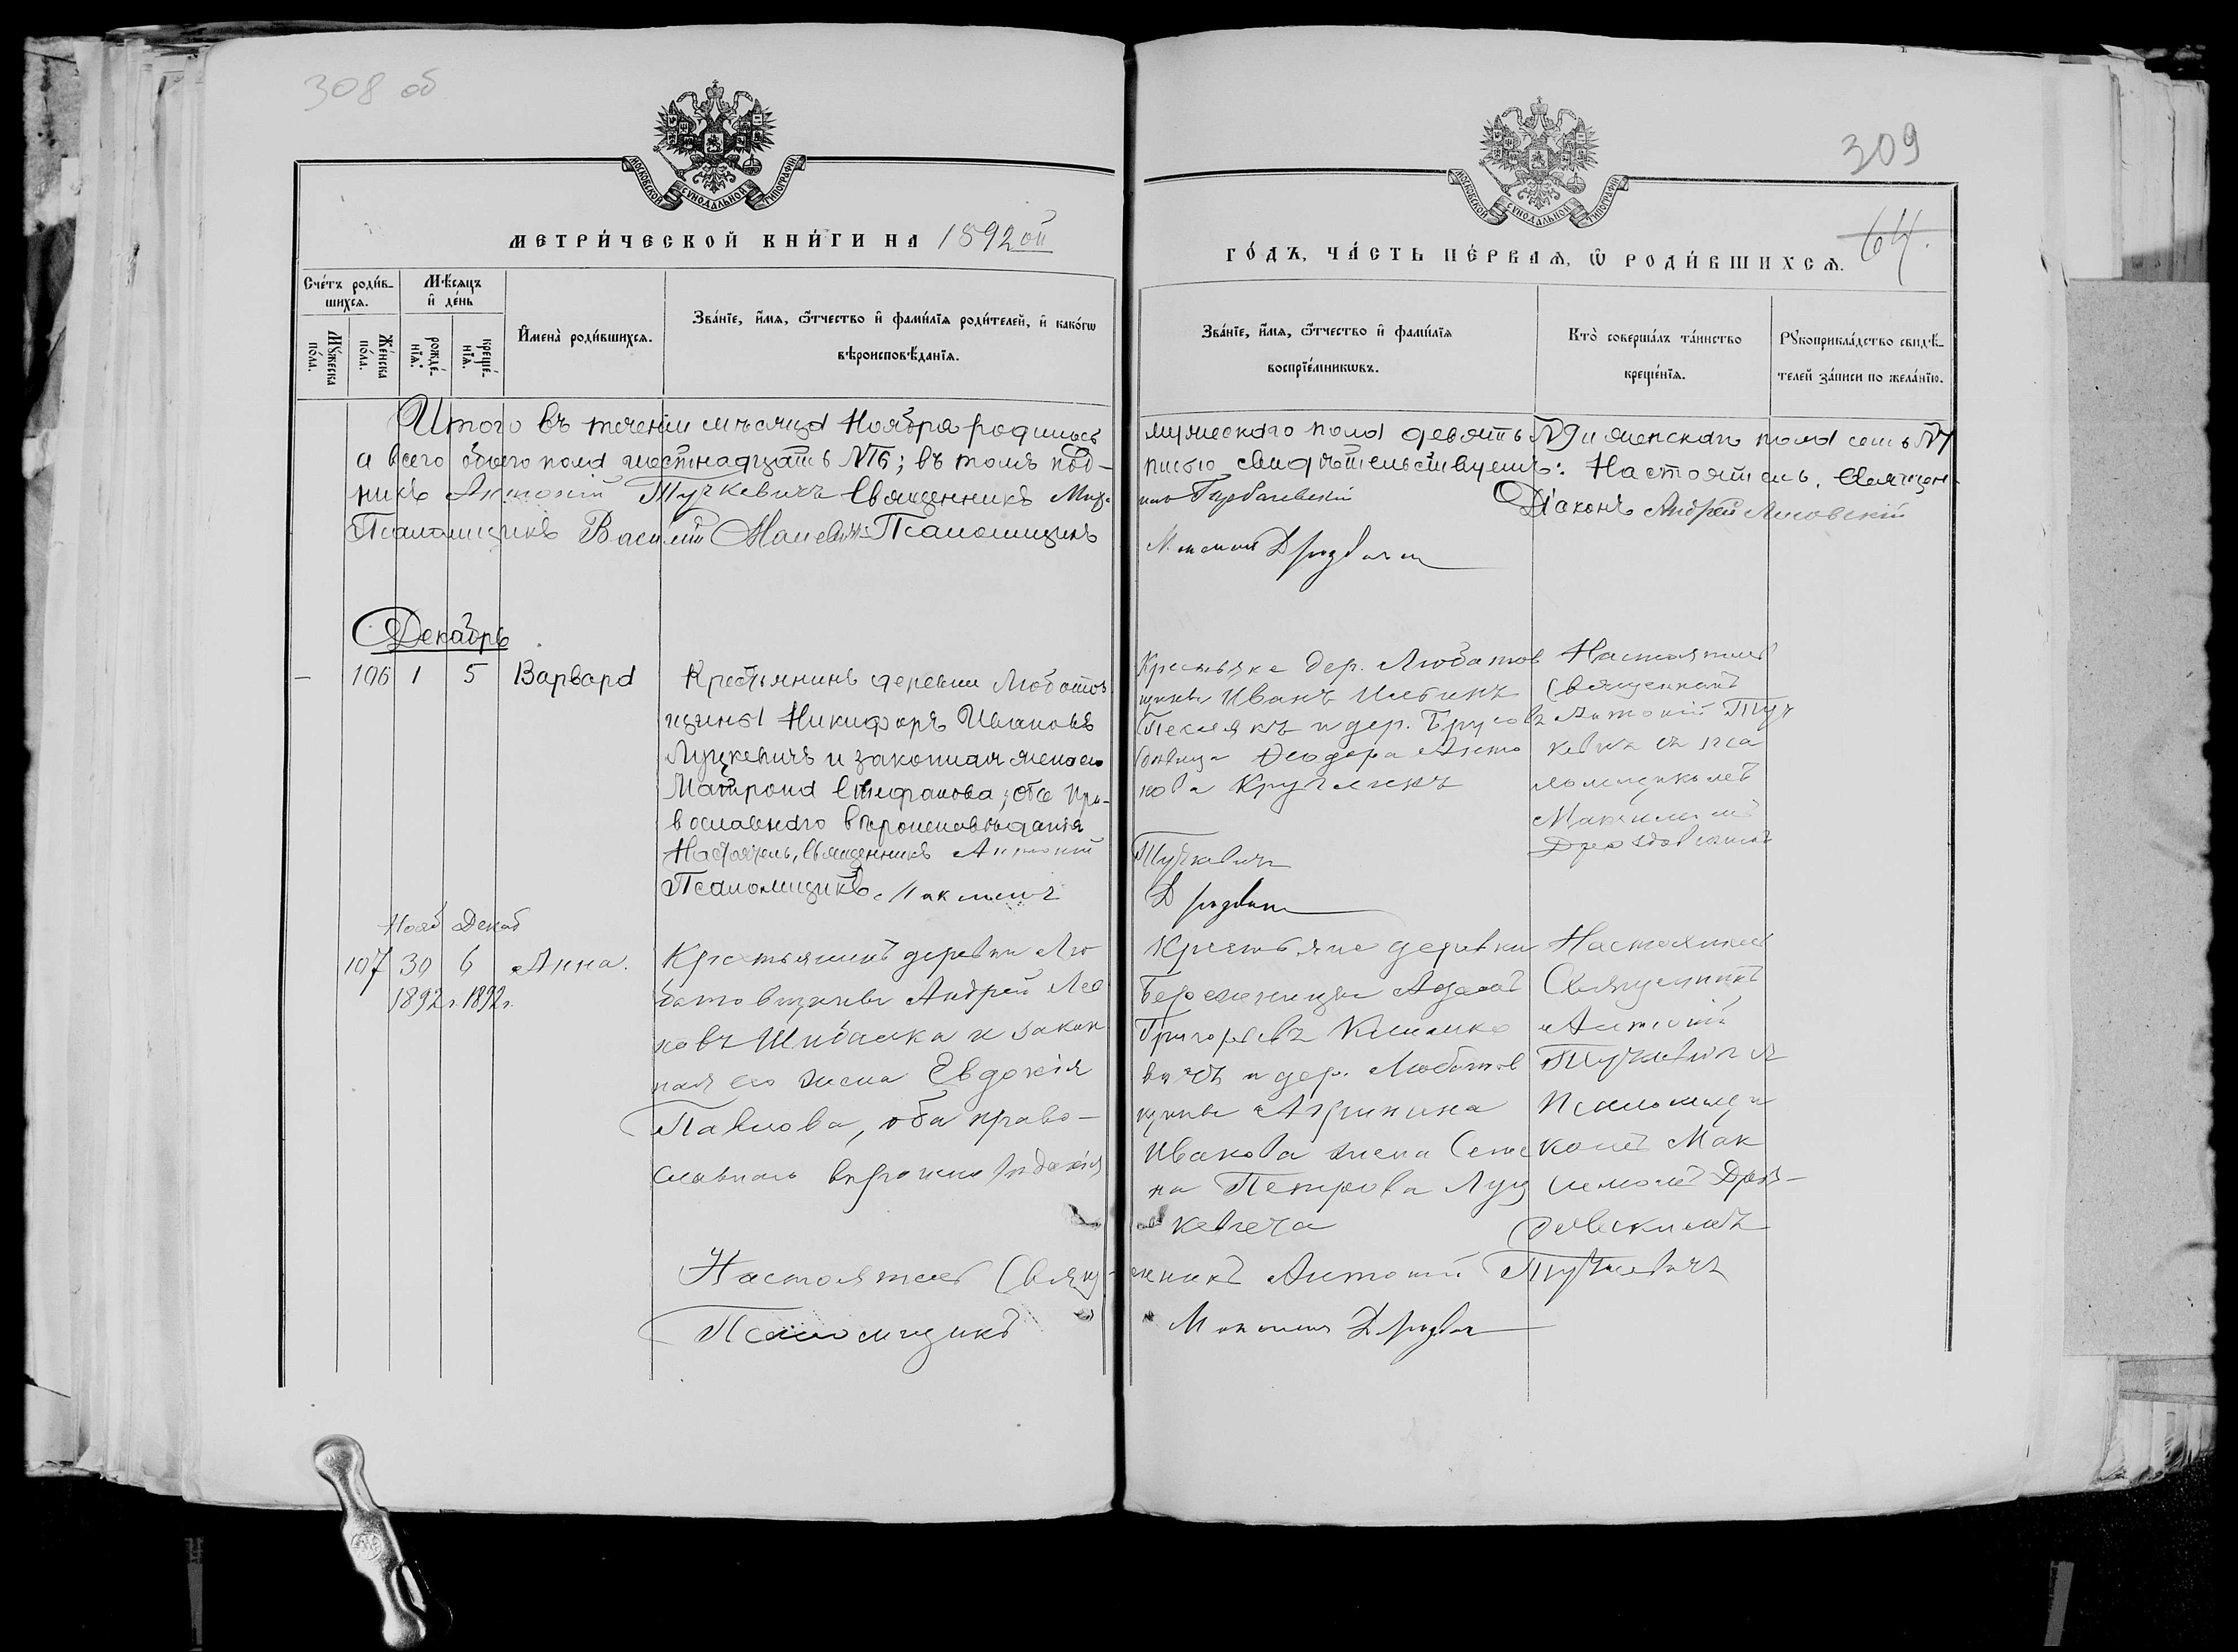 308 об
МОСКОВСКОЙ СУНОДАЛЬНОЙ ТИПОГРАФІИ
МЕТРИ́ЧЕСКОЙ КНИ́ГИ НА 1892 ой
Сче́тъ роди́в-
шихсѧ.
Мѣ́сѧцъ
и҆ де́нь
Мꙋ́жеска
по́ла.
Же́нска
по́ла.
рожде́-
нїѧ.
креще́-
нїѧ.
И҆мена̀ роди́вшихсѧ.
Зва́нїе, и҆́мѧ, ѻ҆́тчество и҆ фами́лїѧ роди́телей, и҆ како́гѡ
вѣроисповѣ́данїѧ.
Итого въ теченіи мѣсяца Ноября родилось
а всего обоего пола шестнадцать №16; въ томъ под-
никъ Антоній Тучкевичъ Священникъ Мих.
Псаломщикъ Василій Псаломщикъ
Декабрь
— 106 1 5 Варвара
Крестьянинъ деревни Любатов
щины Никифоръ Ивановъ
Луцкевичъ и законная жена его
Матрона Стефанова; оба Пра-
вославнаго вѣроисповѣданія
Настоятель, Священникъ Антоній
Псаломщикъ Максимъ
Нояб Декаб
107 30 6 Анна.
1892 г. 1892 г.
Крестьянинъ деревни Лю
батовщины Андрей Лео
новъ Шибалка и закон
ная его жена Евдокія
Павлова, оба право-
славнаго вѣроисповѣданія
Настоятель Свящ-
Псаломщикъ
309
64.
МОСКОВСКОЙ СУНОДАЛЬНОЙ ТИПОГРАФІИ
ГО́ДЪ, ЧА́СТЬ ПЕ́РВАѦ, Ѽ РОДИ́ВШИХСѦ.
Зва́нїе, и҆́мѧ, ѻ҆́тчество и҆ фами́лїѧ
воспрїе́мникѡвъ.
Кто̀ соверша́лъ та́инство
креще́нїѧ.
Рꙋкоприкла́дство свидѣ́-
телей за́писи по жела́нїю.
мужескаго пола девять №9 и женскаго пола семь №7
писью свидѣтельствуемъ: Настоятель, Священ-
никъ Горбачевскій Діаконъ Андрей Лисовскій
Максимъ
Крестьяне дер. Любатов
щины Иванъ Ильинъ
и дер.
Ѳеодора Анто
нова
Настоятель
Священникъ
Антоній Туч
кевичъ съ пса
ломщикомъ
Максимомъ
Тучкевичъ
Крестьяне деревни
Бережницы Адамъ
Григорьевъ Климко
вичъ и дер. Любатов
щины Агрипина
Иванова жена Семе
на Петрова Луц
кевича
Настоятель
Священникъ
Антоній
Тучкевичъ съ
Псаломщи
комъ Мак
симомъ
енникъ Антоній Тучкевичъ
Максимъ